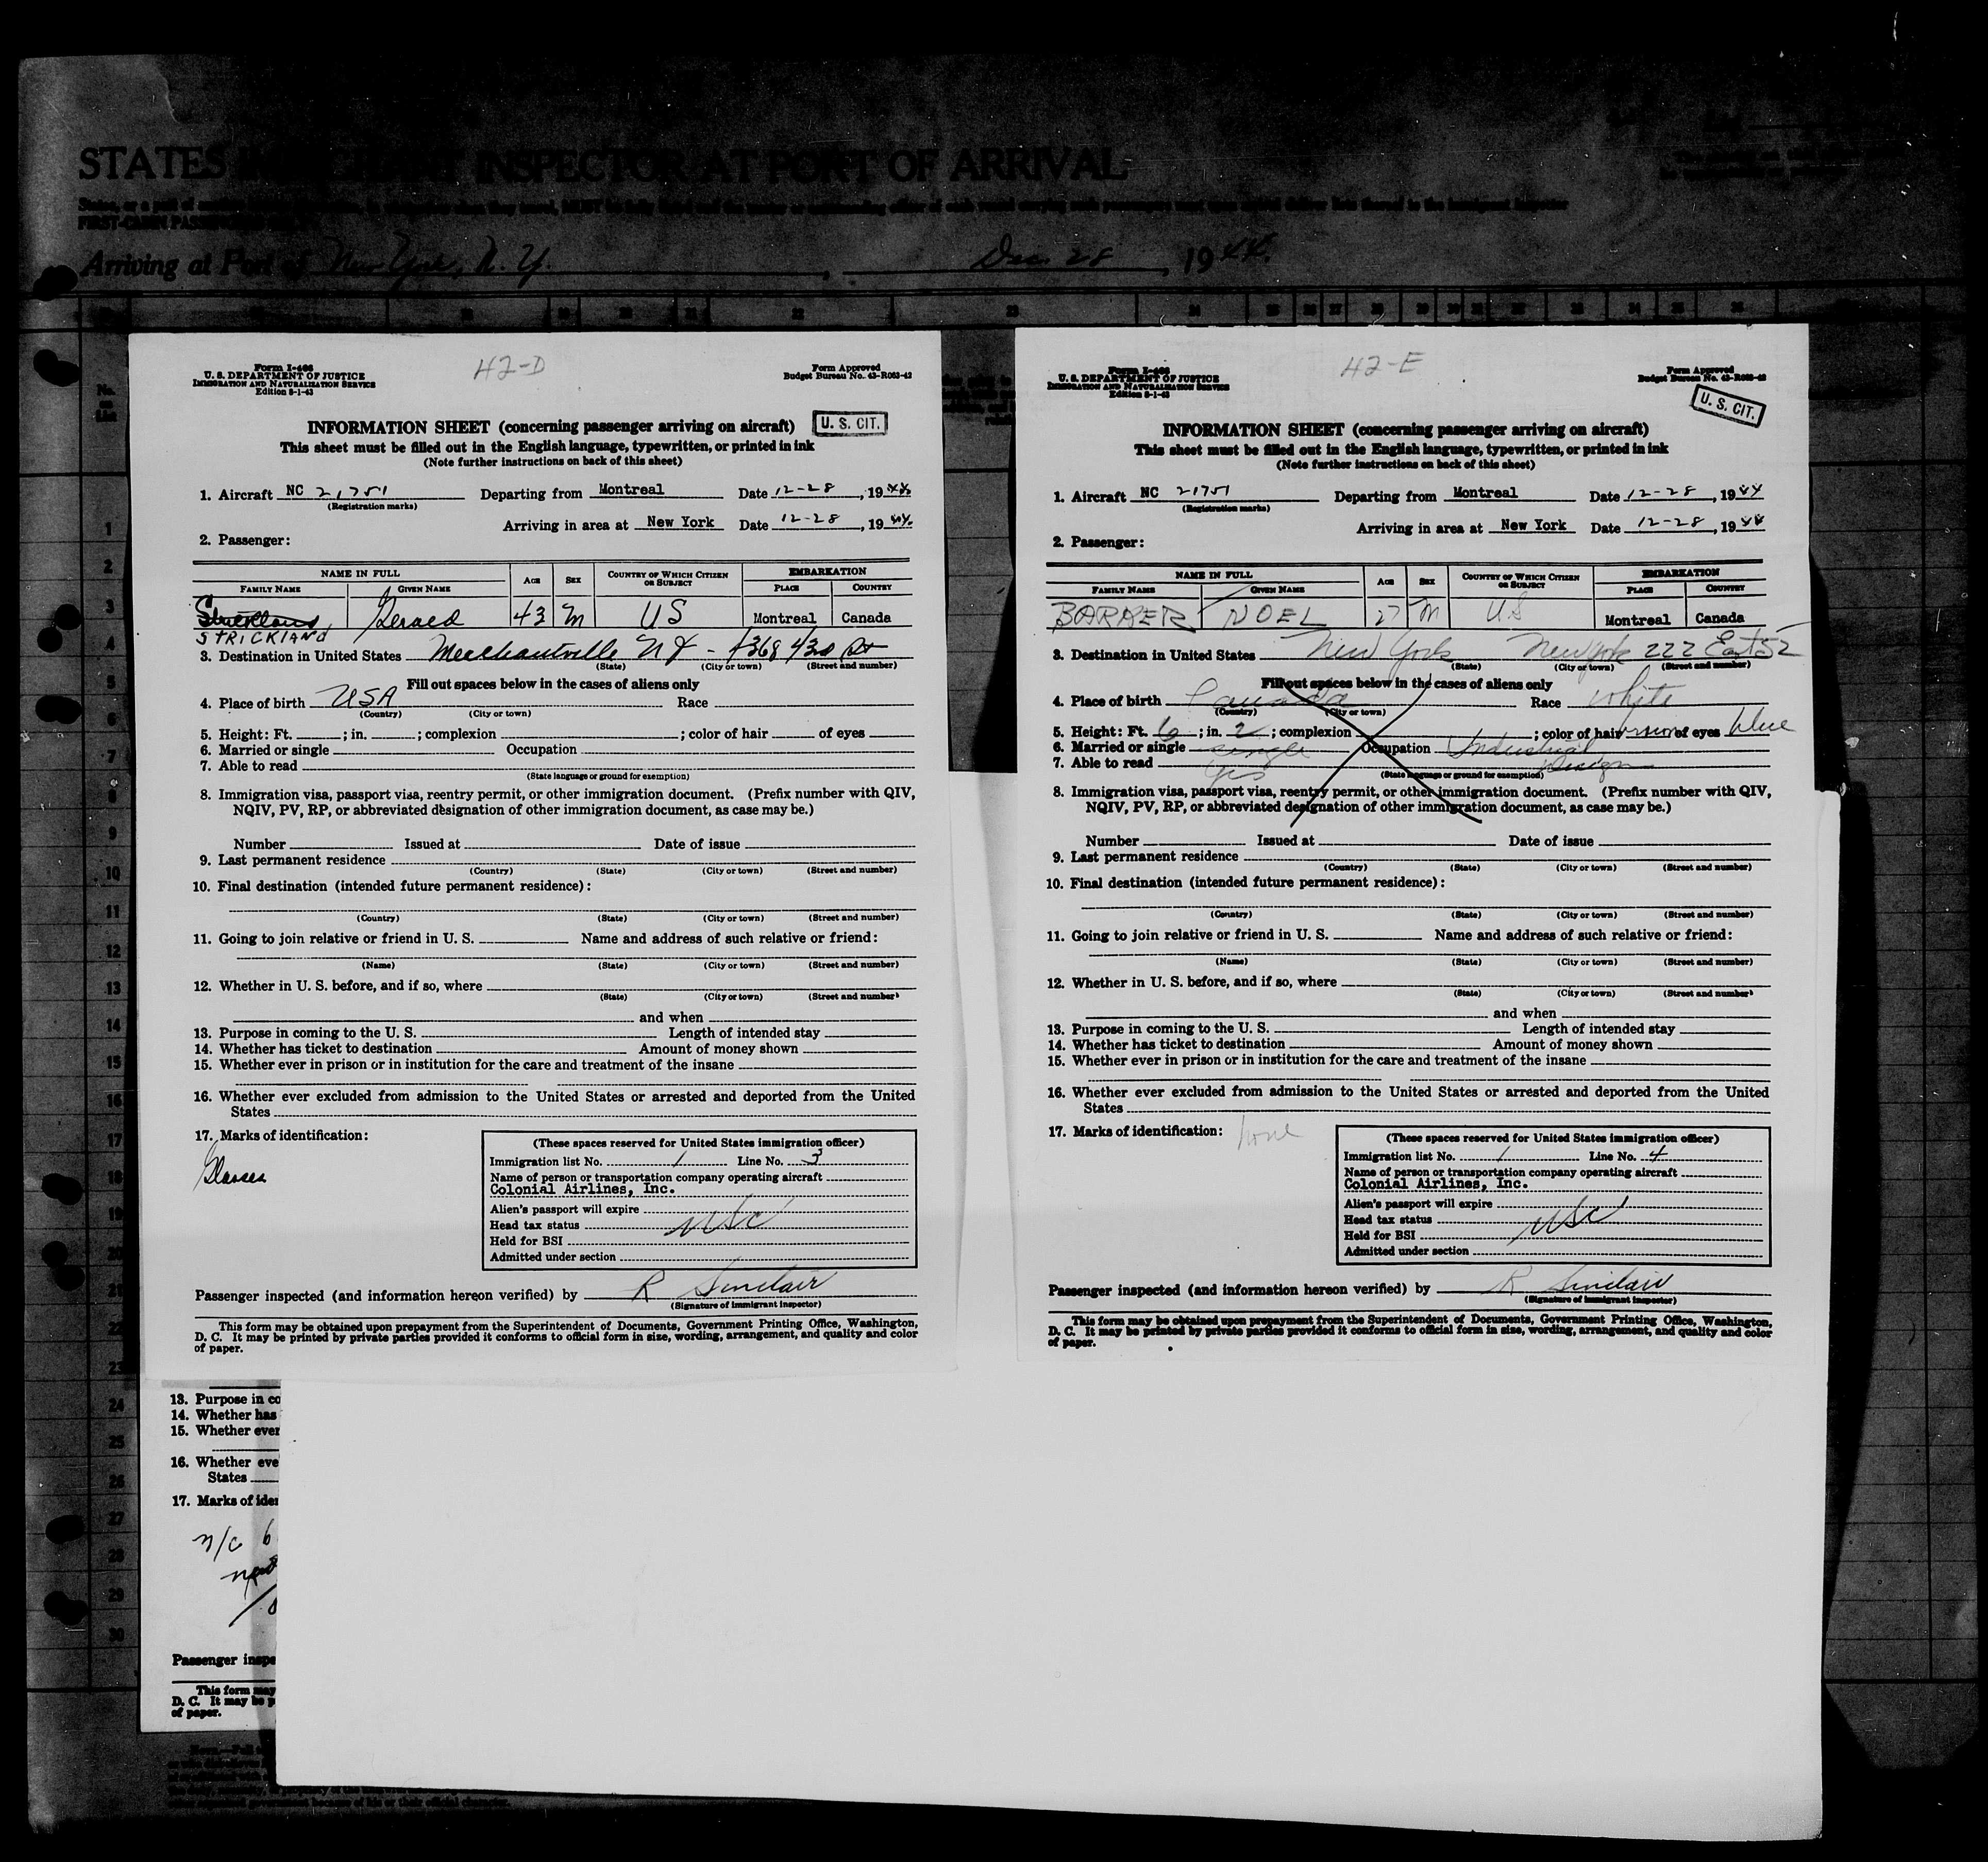 STATES IMMIGRANT INSPECTOR AT PORT OF ARRIVAL
Arriving at Port of New York, N. Y. , Dec 28 , 1944.
42-D
Form I-466
U. S. DEPARTMENT OF JUSTICE
IMMIGRATION AND NATURALIZATION SERVICE
Edition 8-1-43
Form Approved
Budget Bureau No. 43-R063-42
U. S. CIT.
INFORMATION SHEET (concerning passenger arriving on aircraft)
This sheet must be filled out in the English language, typewritten, or printed in ink
(Note further instructions on back of this sheet)
1. Aircraft NC 21751 Departing from Montreal Date 12-28, 1944
(Registration marks)
Arriving in area at New York Date 12-28, 1944
2. Passenger:
NAME IN FULL AGE SEX COUNTRY OF WHICH CITIZEN OR SUBJECT EMBARKATION
FAMILY NAME GIVEN NAME PLACE COUNTRY
Strickland Gerald 43 M US Montreal Canada
STRICKLAND
3. Destination in United States Merchantville NJ - 368 43d St
(State) (City or town) (Street and number)
Fill out spaces below in the cases of aliens only
4. Place of birth USA Race
(Country) (City or town)
5. Height: Ft. ; in. ; complexion ; color of hair of eyes
6. Married or single Occupation
7. Able to read
(State language or ground for exemption)
8. Immigration visa, passport visa, reentry permit, or other immigration document. (Prefix number with QIV,
NQIV, PV, RP, or abbreviated designation of other immigration document, as case may be.)
Number Issued at Date of issue
9. Last permanent residence
(Country) (State) (City or town) (Street and number)
10. Final destination (intended future permanent residence):
(Country) (State) (City or town) (Street and number)
11. Going to join relative or friend in U. S. Name and address of such relative or friend:
(Name) (State) (City or town) (Street and number)
12. Whether in U. S. before, and if so, where
(State) (City or town) (Street and number)
and when
13. Purpose in coming to the U. S. Length of intended stay
14. Whether has ticket to destination Amount of money shown
15. Whether ever in prison or in institution for the care and treatment of the insane
16. Whether ever excluded from admission to the United States or arrested and deported from the United
States
17. Marks of identification:
Glasses
(These spaces reserved for United States immigration officer)
Immigration list No. 1 Line No. 3
Name of person or transportation company operating aircraft
Colonial Airlines, Inc.
Alien's passport will expire
Head tax status USC
Held for BSI
Admitted under section
Passenger inspected (and information hereon verified) by R Sinclair
(Signature of immigrant inspector)
This form may be obtained upon prepayment from the Superintendent of Documents, Government Printing Office, Washington,
D. C. It may be printed by private parties provided it conforms to official form in size, wording, arrangement, and quality and color
of paper.
42-E
Form I-466
U. S. DEPARTMENT OF JUSTICE
IMMIGRATION AND NATURALIZATION SERVICE
Edition 8-1-43
Form Approved
Budget Bureau No. 43-R063-42
U. S. CIT.
INFORMATION SHEET (concerning passenger arriving on aircraft)
This sheet must be filled out in the English language, typewritten, or printed in ink
(Note further instructions on back of this sheet)
1. Aircraft NC 21751 Departing from Montreal Date 12-28, 1944
(Registration marks)
Arriving in area at New York Date 12-28, 1944
2. Passenger:
NAME IN FULL AGE SEX COUNTRY OF WHICH CITIZEN OR SUBJECT EMBARKATION
FAMILY NAME GIVEN NAME PLACE COUNTRY
BARKER NOEL 27 M US Montreal Canada
3. Destination in United States New York New York 222 East 52
(State) (City or town) (Street and number)
Fill out spaces below in the cases of aliens only
4. Place of birth Canada Race White
(Country) (City or town)
5. Height: Ft. 6 ; in. 2 ; complexion ; color of hair brown of eyes blue
6. Married or single single Occupation Industrial Design
7. Able to read yes
(State language or ground for exemption)
8. Immigration visa, passport visa, reentry permit, or other immigration document. (Prefix number with QIV,
NQIV, PV, RP, or abbreviated designation of other immigration document, as case may be.)
Number Issued at Date of issue
9. Last permanent residence
(Country) (State) (City or town) (Street and number)
10. Final destination (intended future permanent residence):
(Country) (State) (City or town) (Street and number)
11. Going to join relative or friend in U. S. Name and address of such relative or friend:
(Name) (State) (City or town) (Street and number)
12. Whether in U. S. before, and if so, where
(State) (City or town) (Street and number)
and when
13. Purpose in coming to the U. S. Length of intended stay
14. Whether has ticket to destination Amount of money shown
15. Whether ever in prison or in institution for the care and treatment of the insane
16. Whether ever excluded from admission to the United States or arrested and deported from the United
States
17. Marks of identification: none
(These spaces reserved for United States immigration officer)
Immigration list No. 1 Line No. 4
Name of person or transportation company operating aircraft
Colonial Airlines, Inc.
Alien's passport will expire
Head tax status USC
Held for BSI
Admitted under section
Passenger inspected (and information hereon verified) by R Sinclair
(Signature of immigrant inspector)
This form may be obtained upon prepayment from the Superintendent of Documents, Government Printing Office, Washington,
D. C. It may be printed by private parties provided it conforms to official form in size, wording, arrangement, and quality and color
of paper.
13. Purpose in co
14. Whether has
15. Whether ever
16. Whether eve
States
17. Marks of iden
n/c
Passenger inspe
This form may
D. C. It may be p
of paper.